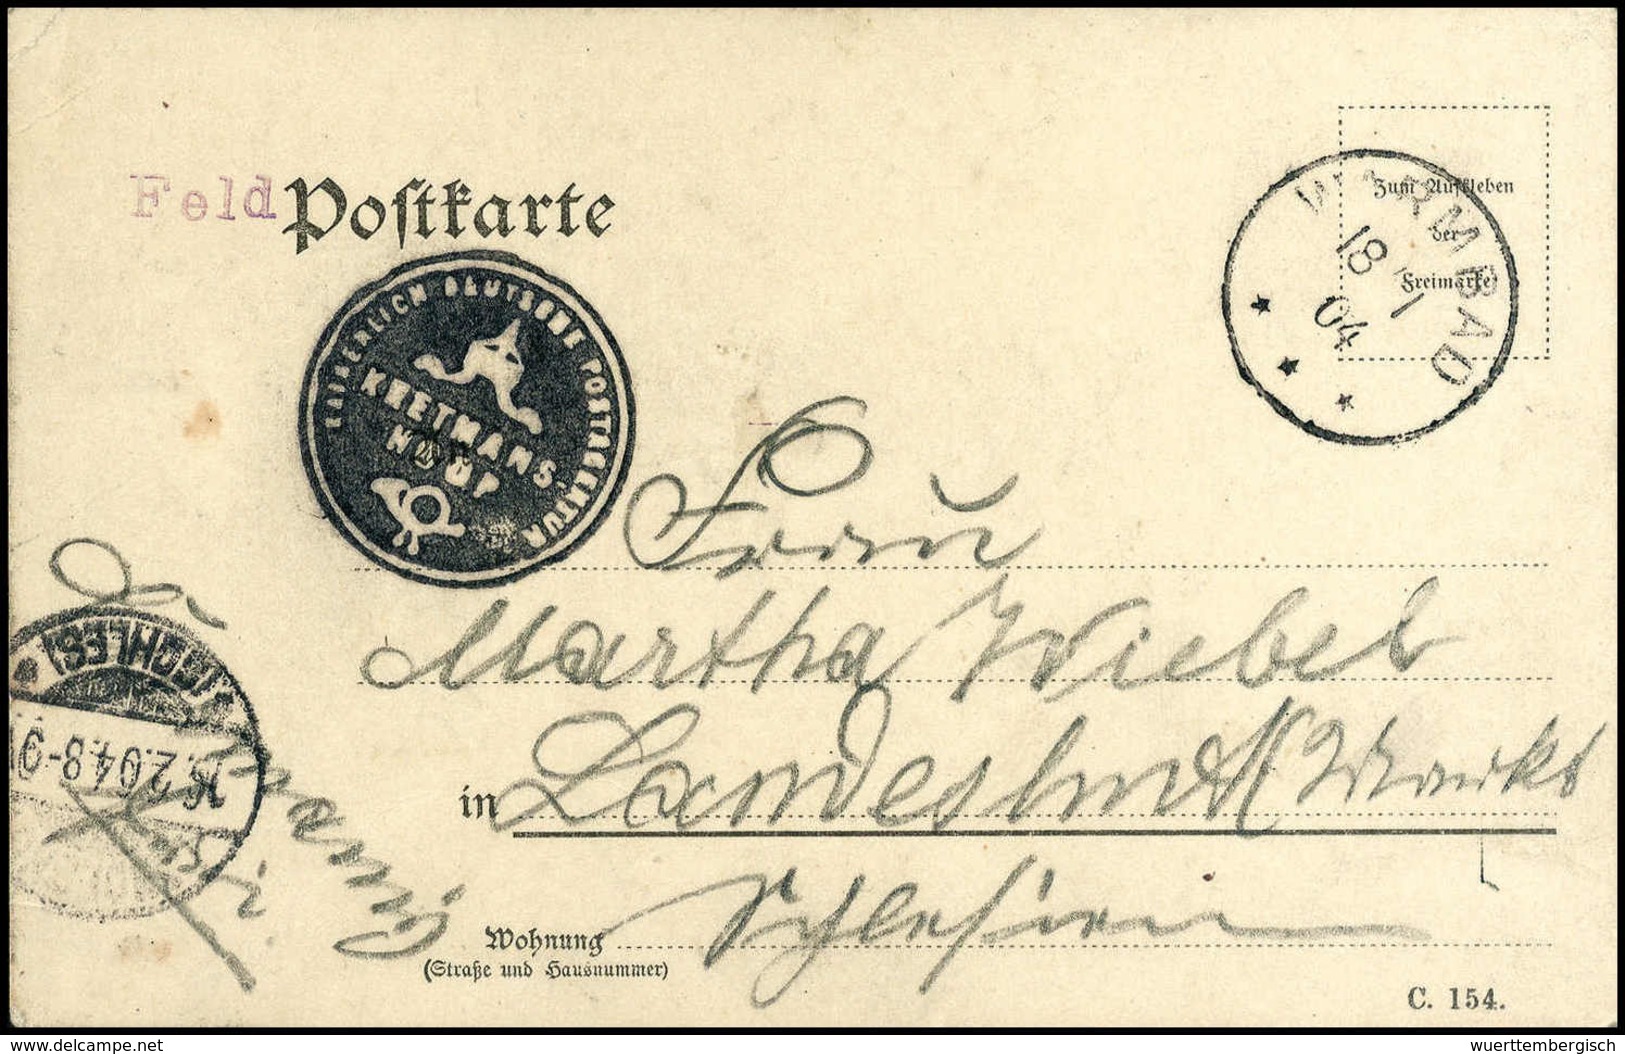 Feld Postkarte
Zum Aufkleben
der
Freimarke
WARMBAD
18 1
04
KAISERLICH DEUTSCHE POSTAGENTUR
KEETMANS
HOOP
An
Frau
Martha Wiebel
in Landeshut Markt
Schlesien
(SCHLES)
2.04.8-9V
Wohnung
(Straße und Hausnummer)
C. 154.
www.delcampe.net
wuerttembergisch